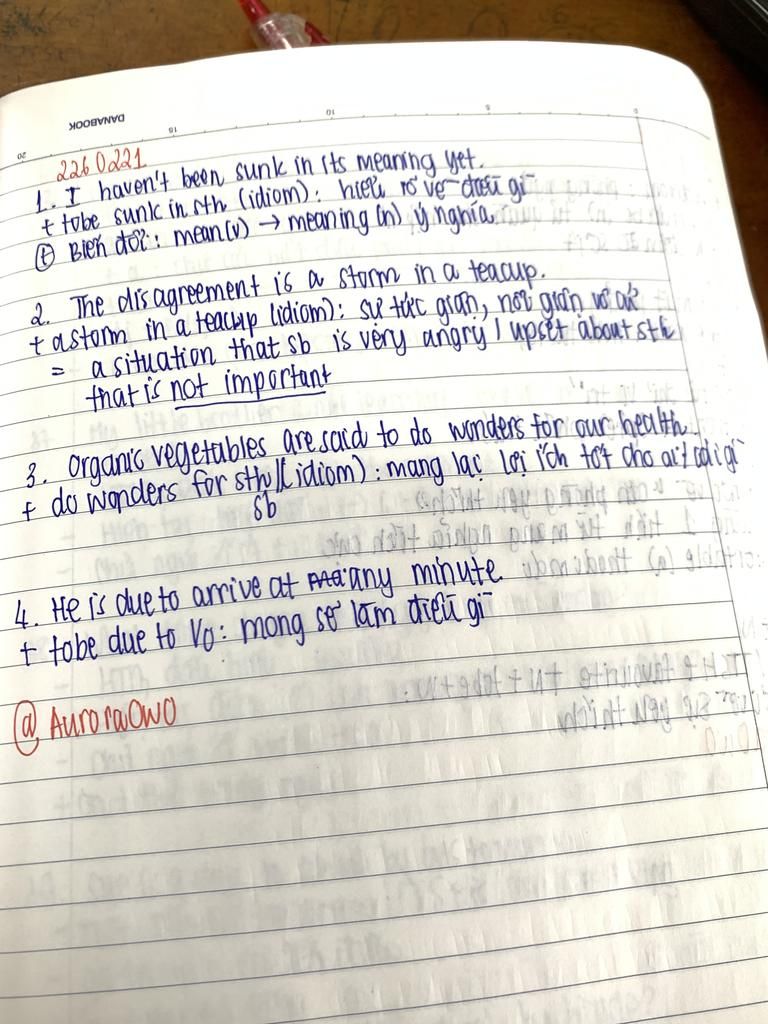 DANABOOK
20 15 10 5 0
2260221
1. I haven't been sunk in its meaning yet.
+ tobe sunk in sth (idiom): hiểu rõ về điều gì
(t) Biến đổi: mean(v) → meaning (n) ý nghĩa.
2. The disagreement is a storm in a teacup.
+ a storm in a teacup (idiom): sự tức giận, nổi giận vô cớ
= a situation that sb is very angry / upset about sth
that is not important
3. Organic vegetables are said to do wonders for our health.
+ do wonders for sth/ (idiom): mang lại lợi ích tốt cho ai/ cái gì
sb
4. He is due to arrive at any minute.
+ tobe due to Vo: mong sẽ làm điều gì
@ AuroraOwO